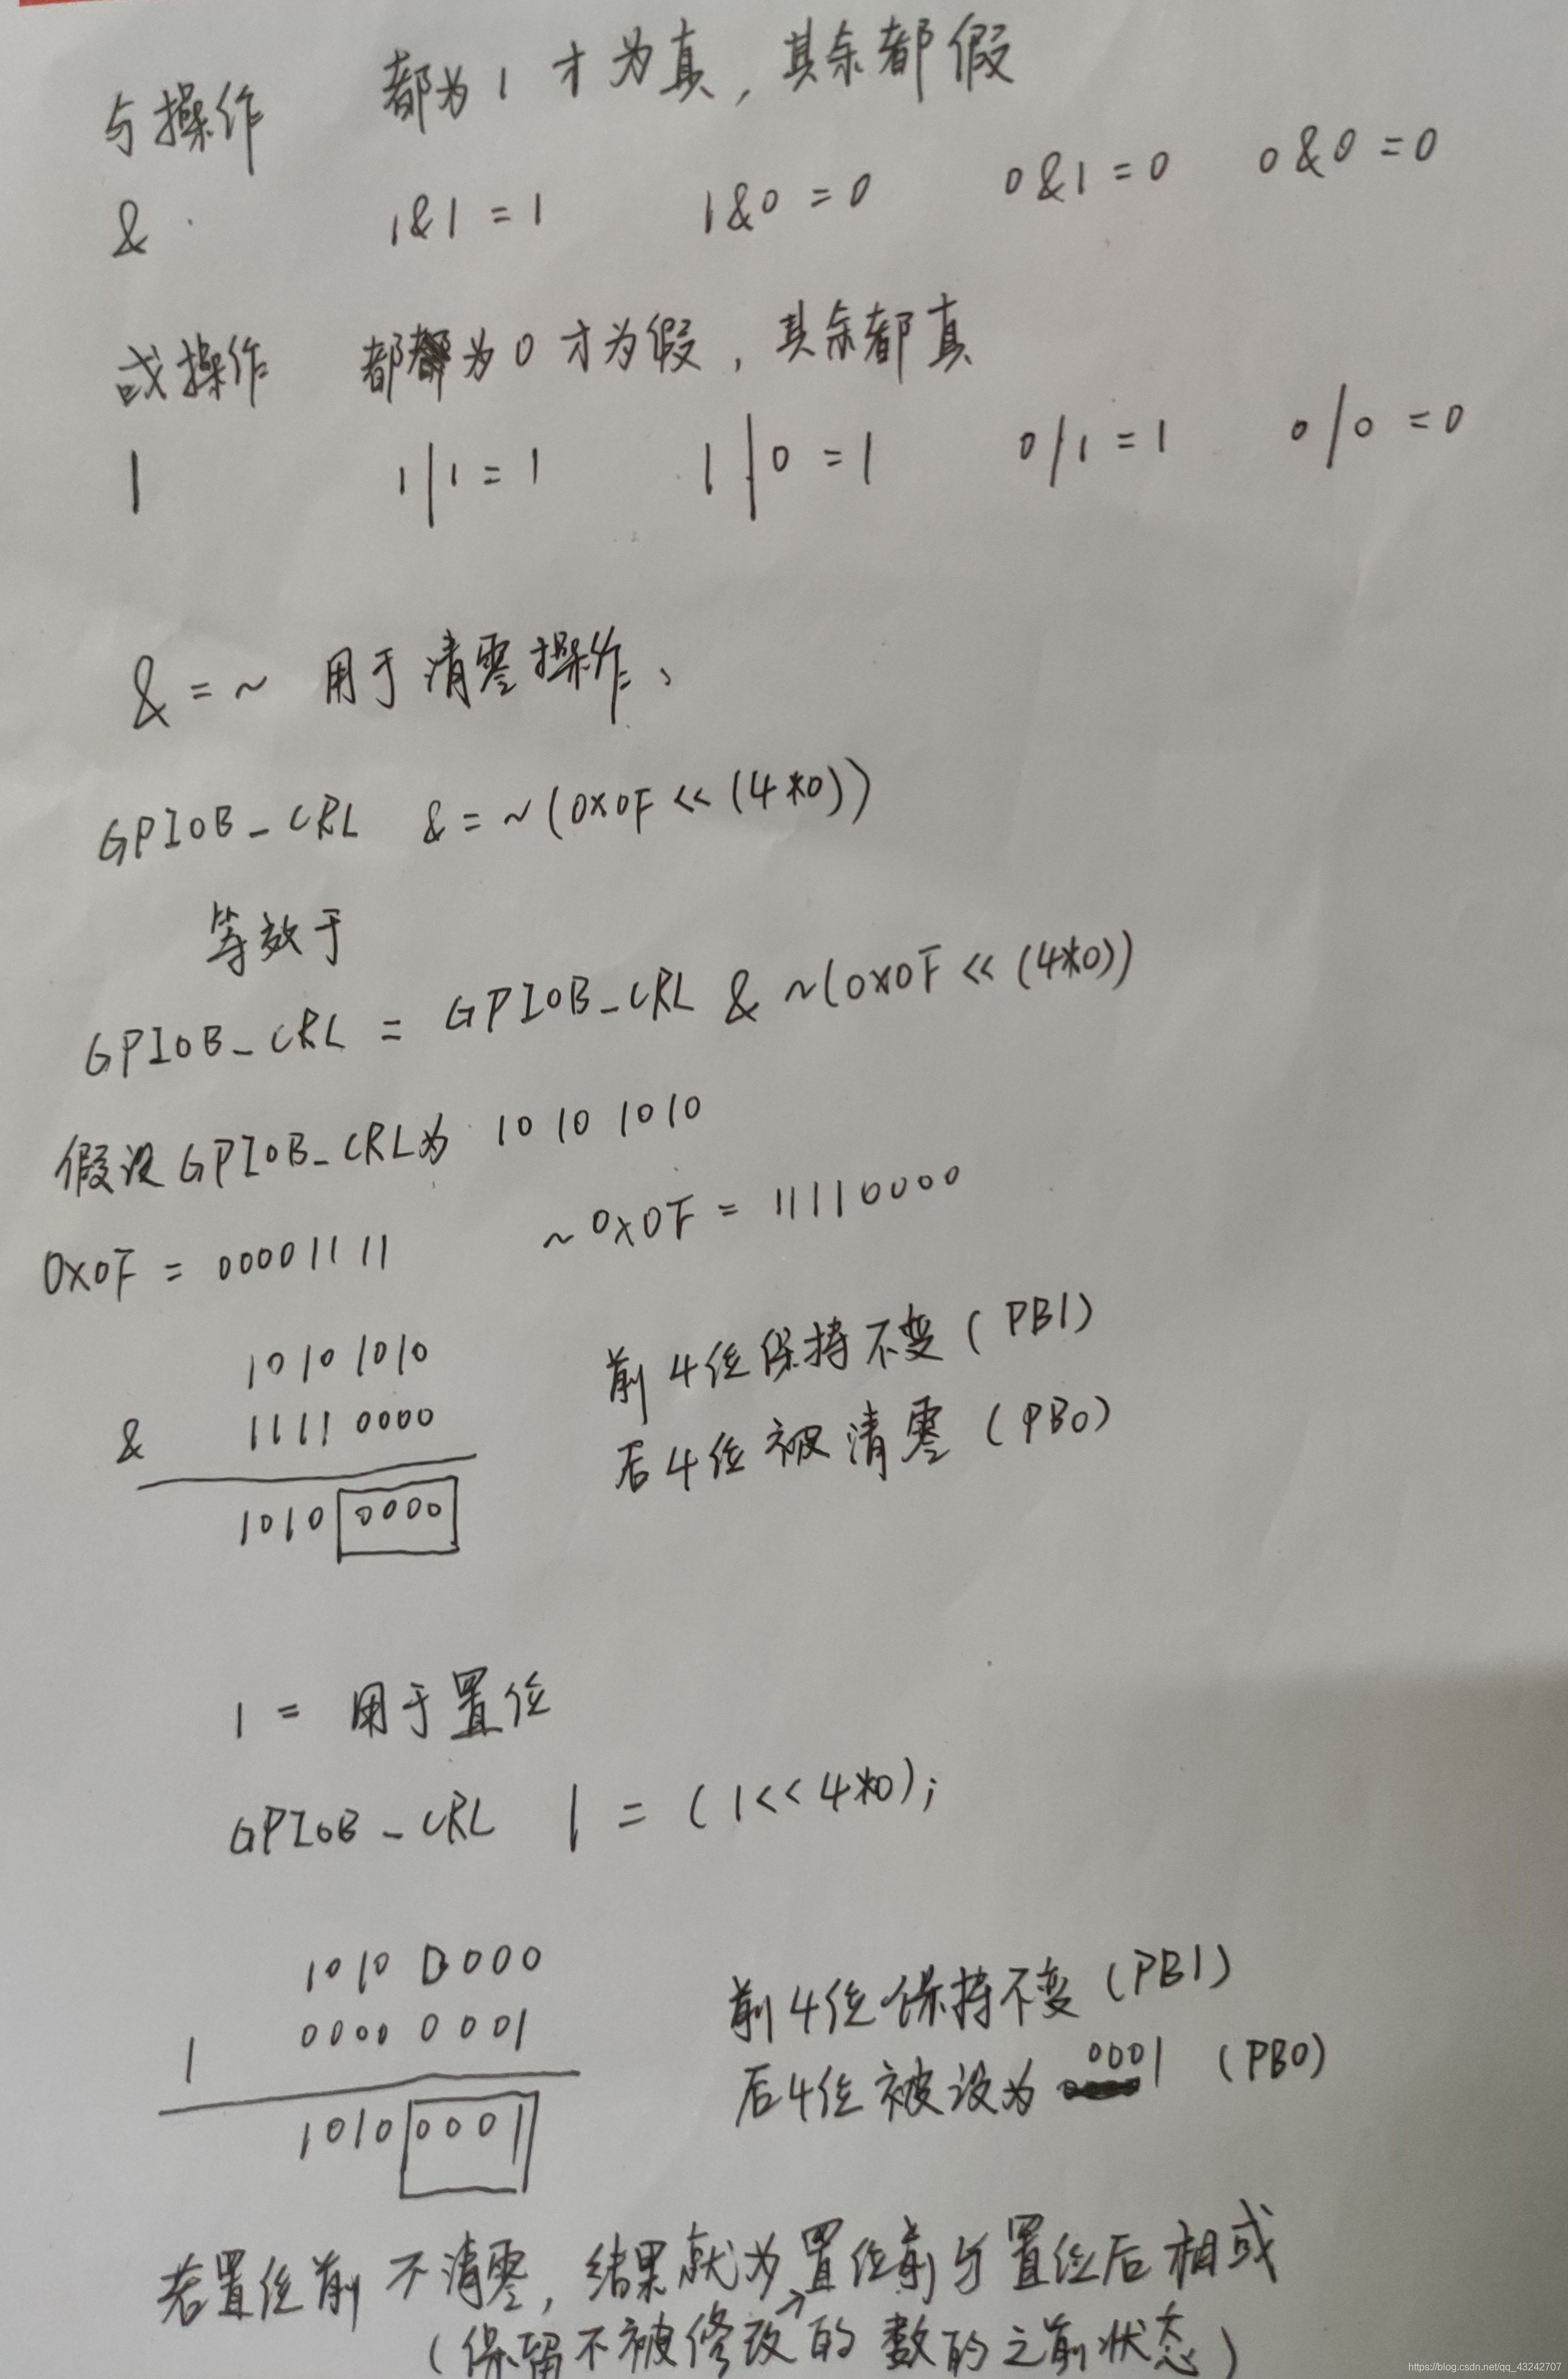 与操作 都为1才为真，其余都假
& 1&1=1 1&0=0 0&1=0 0&0=0
或操作 都为0才为假，其余都真
| 1|1=1 1|0=1 0|1=1 0|0=0
&=~ 用于清零操作、
GPIOB_CRL &=~(0x0F<<(4*0))
等效于
GPIOB_CRL = GPIOB_CRL & ~(0x0F<<(4*0))
假设GPIOB_CRL为 1010 1010
0x0F = 00001111 ~0x0F = 11110000
1010 1010 前4位保持不变(PB1)
& 1111 0000 后4位被清零(PB0)
1010 0000
|= 用于置位
GPIOB_CRL |= (1<<4*0);
1010 0000 前4位保持不变(PB1)
| 0000 0001 后4位被设为 0001 (PB0)
1010 0001
若置位前不清零，结果就为置位前与置位后相或
(保留不被修改的数的之前状态)
https://blog.csdn.net/qq_43242707